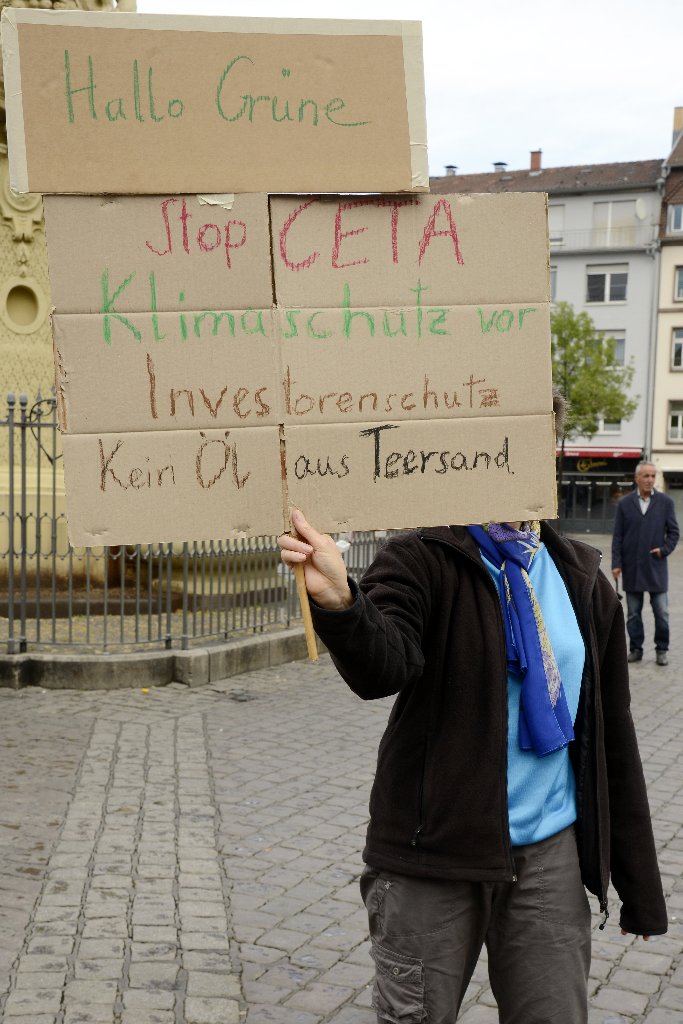 Hallo Grüne
Stop CETA
Klimaschutz vor
Investorenschutz
Kein Öl aus Teersand.